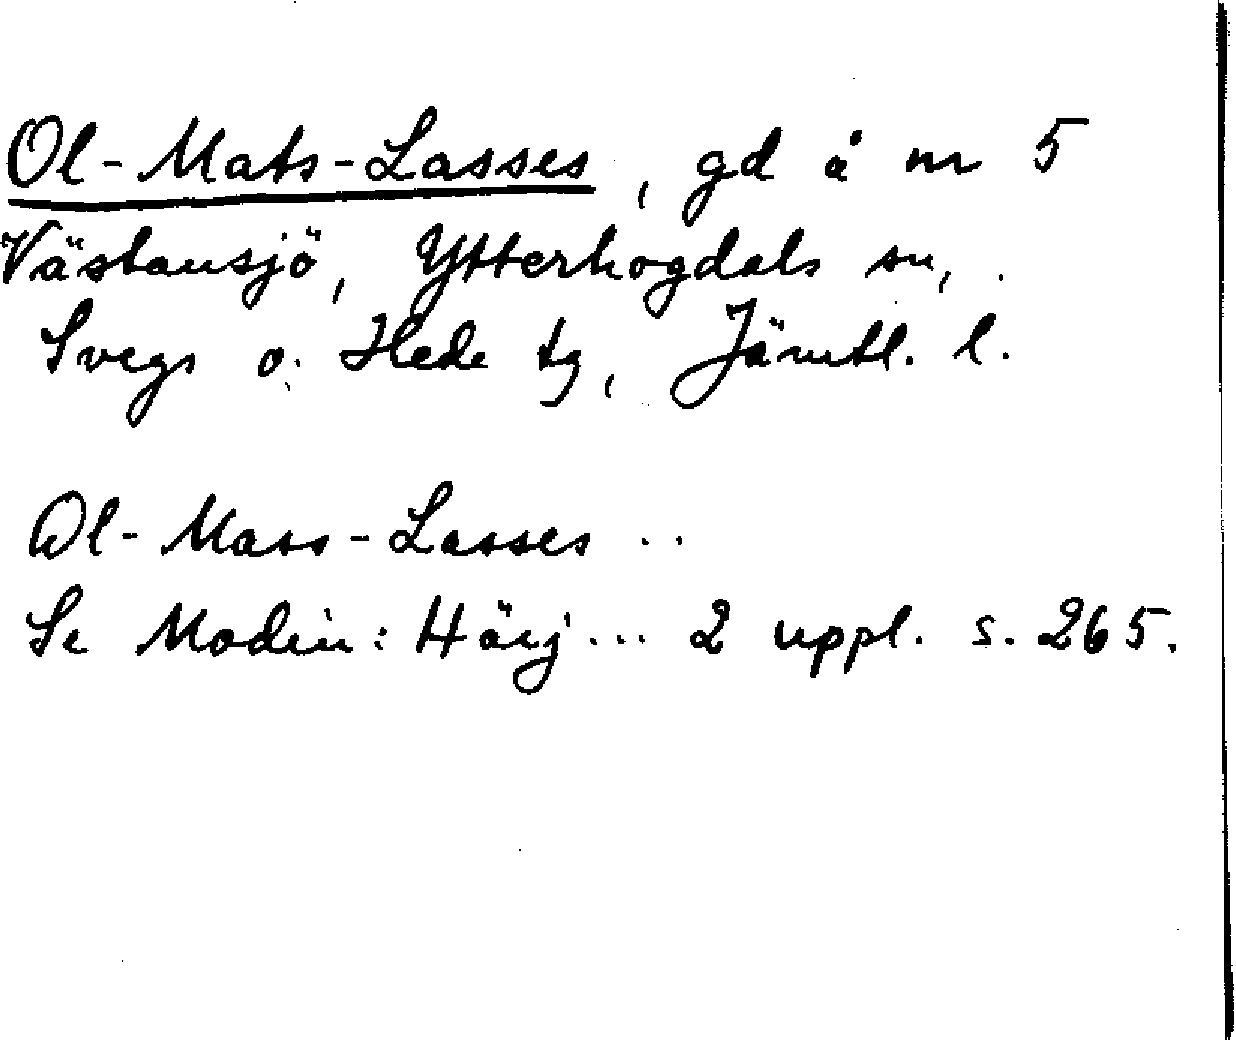 Ol-Mats-Lasses, gd å nr 5
Västansjö, Ytterhogdals sn,
Svegs o. Hede tg, Jämtl. l.
Ol-Mass-Lasses ..
Se Modin: Härj... 2 uppl. s. 265.